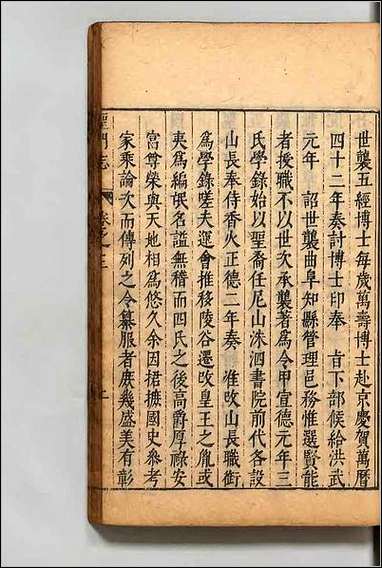 世襲五經博士每歲萬壽博士赴京慶賀萬曆
四十二年奏討博士印奉 吉下部候給洪武
元年 詔世襲曲阜知縣管理邑務惟選賢能
者授職不以世次承襲著為令甲宣德元年三
氏學錄始以聖裔任尼山洙泗書院前代各設
山長奉侍香火正德二年奏 准改山長職銜
為學錄嗟夫運會推移陵谷遷改皇王之胤或
夷為編氓名諡無稽而四氏之後高爵厚祿安
富尊榮與天地相為悠久余因捃摭國史參考
家乘論次而傳列之令纂服者庶幾盛美有彰
聖門志 卷之三